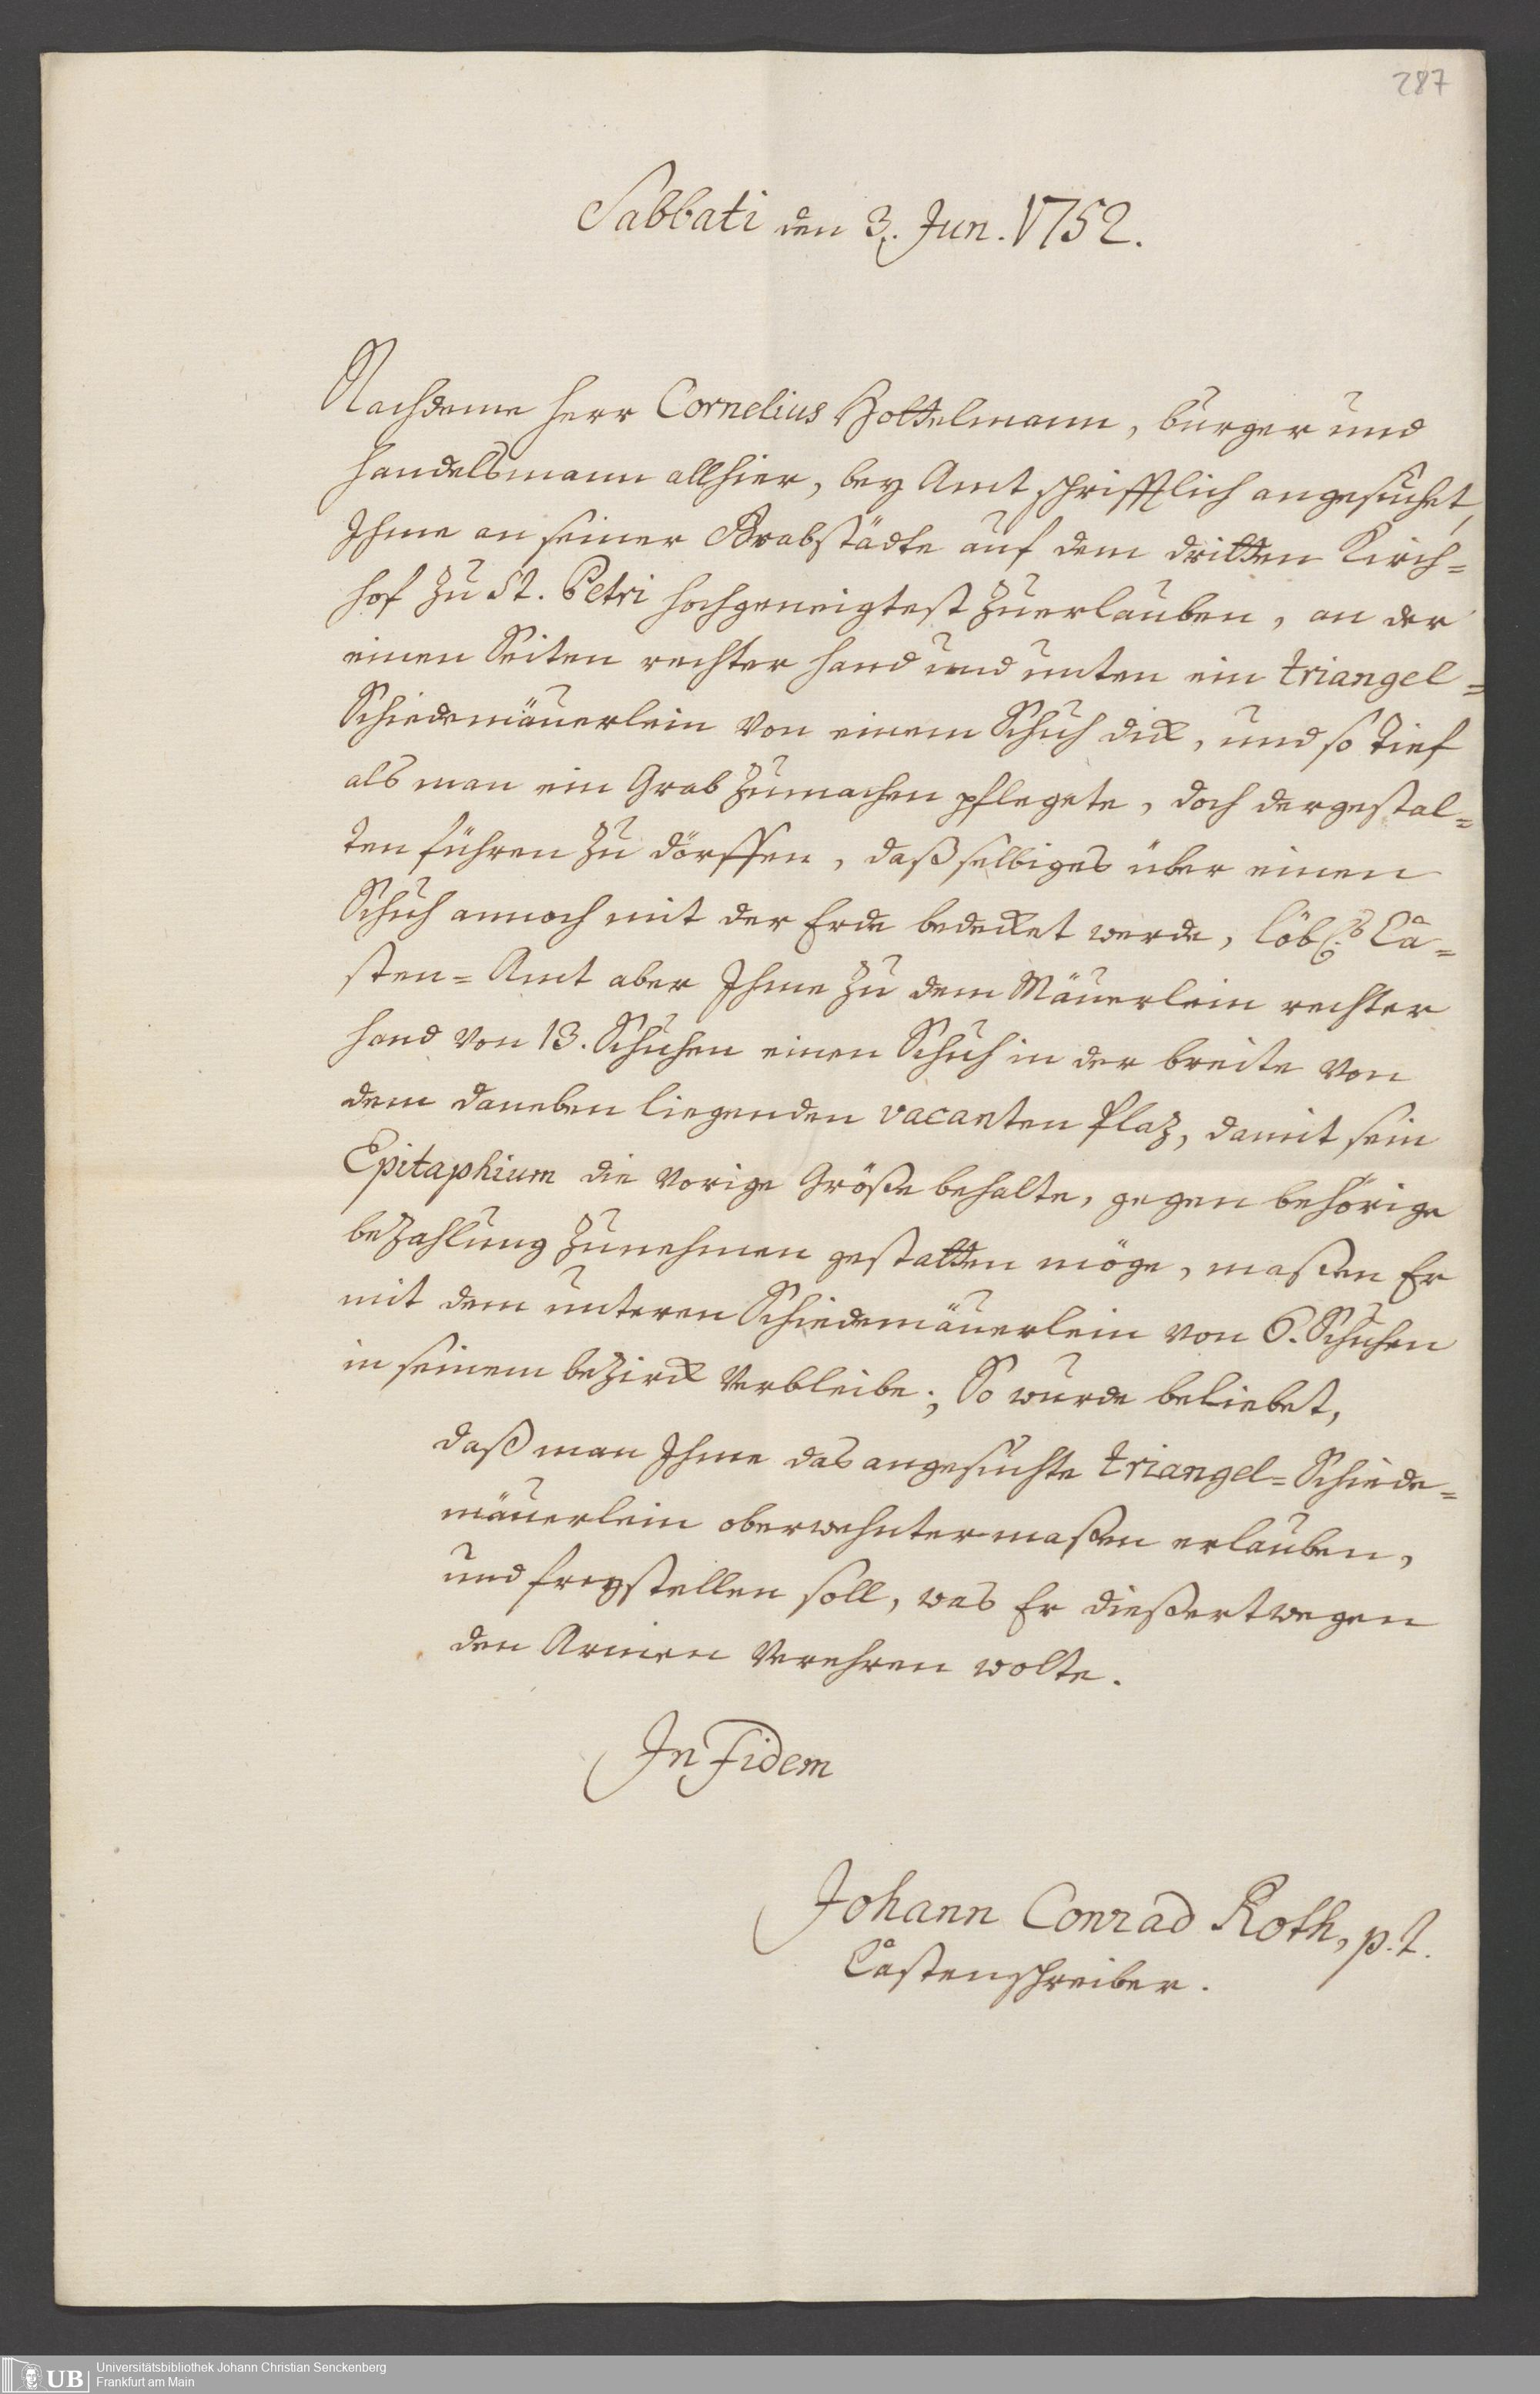 287
Sabbati den 3. Jun. 1752.
Nachdeme Herr Cornelius Hottelmann, burger und
Handelsmann allhier, bey Amt schrifftlich angesuchet,
Ihme an seiner Grabstädte auf dem dritten Kirch=
hof zu St. Petri hochgeneigtest zuerlauben, an der
einen Seiten rechter Hand und unten ein triangel=
Schiedemäuerlein von einem Schuh dick, und so tief
als man ein Grab zumachen pflegete, doch dergestal=
ten führen zu dörffen, daß selbiges über einen
Schuh annoch mit der Erde bedecket werde, löbl.s Ca=
sten=Amt aber Ihme zu dem Mäuerlein rechter
Hand von 13. Schuhen einen Schuh in der breite von
dem daneben liegenden vacanten Plaz, damit sein
Epitaphium die vorige Größe behalte, gegen behörige
bezahlung zunehmen gestatten möge, maßen Er
mit dem unteren Schiedemäuerlein von 6. Schuhen
in seinem bezirck verbleibe; So wurde beliebet,
daß man Ihme das angesuchte triangel=Schiede=
mäuerlein oberwehntermaßen erlauben,
und freystellen soll, was Er dießertwegen
den Armen verehren wolte.
In Fidem
Johann Conrad Roth, p.t.
Castenschreiber.
UB
Universitätsbibliothek Johann Christian Senckenberg
Frankfurt am Main